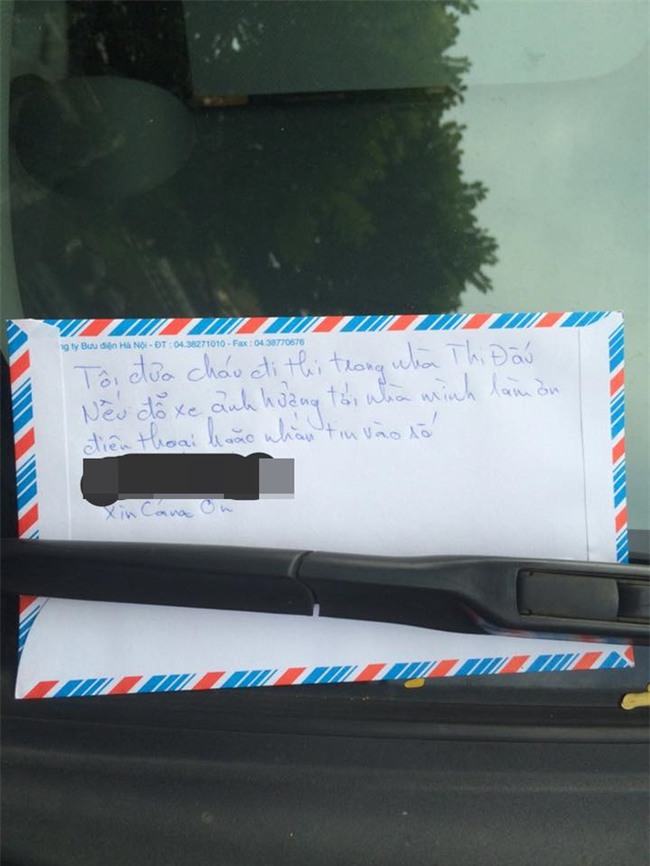 ng ty Bưu điện Hà Nội - ĐT : 04.38271010 - Fax : 04.38770676
Tôi đưa cháu đi thi trong nhà Thi Đấu
Nếu đỗ xe ảnh hưởng tới nhà mình làm ơn
điện thoại hoặc nhắn tin vào số
Xin Cám Ơn